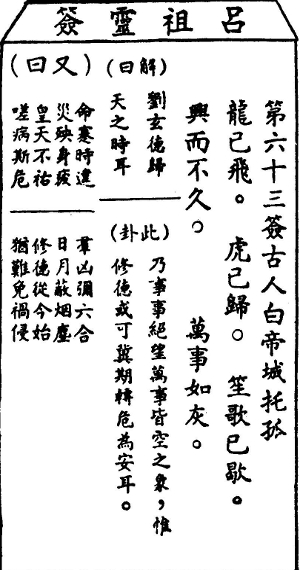 呂祖靈簽
第六十三簽古人白帝城托孤
龍已飛。虎已歸。笙歌已歇。
興而不久。萬事如灰。
(曰解)
劉玄德歸
天之時耳
(此卦)
乃事事絕望萬事皆空之象，惟
修德或可冀期轉危為安耳。
(又曰)
命蹇時違
災殃身疲
皇天不祐
嗟病斯危
羣凶彌六合
日月蔽烟塵
修德從今始
猶難免禍侵